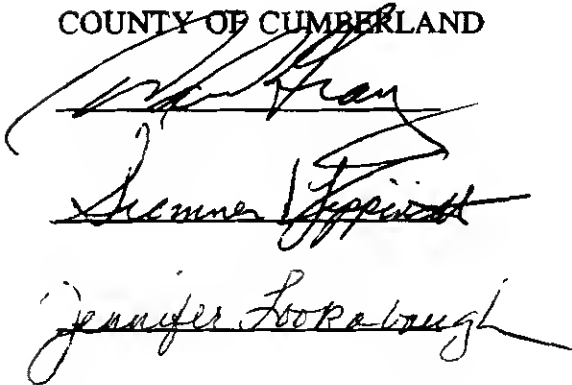 COUNTY OF CUMBERLAND
Sumner Lippincott
Jennifer Lookabaugh